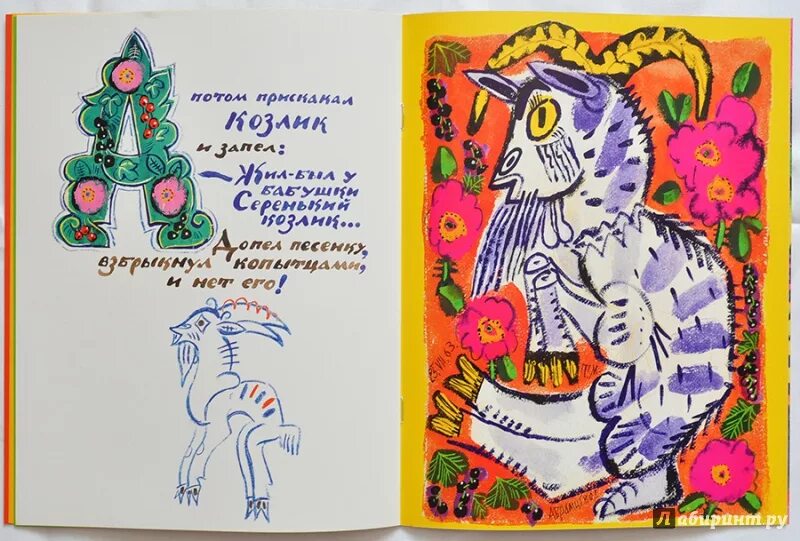 А
потом прискакал
козлик
и запел:
— Жил-был у
бабушки
Серенький
козлик...
Допел песенку,
взбрыкнул копытцами,
и нет его!
Лабиринт.ру